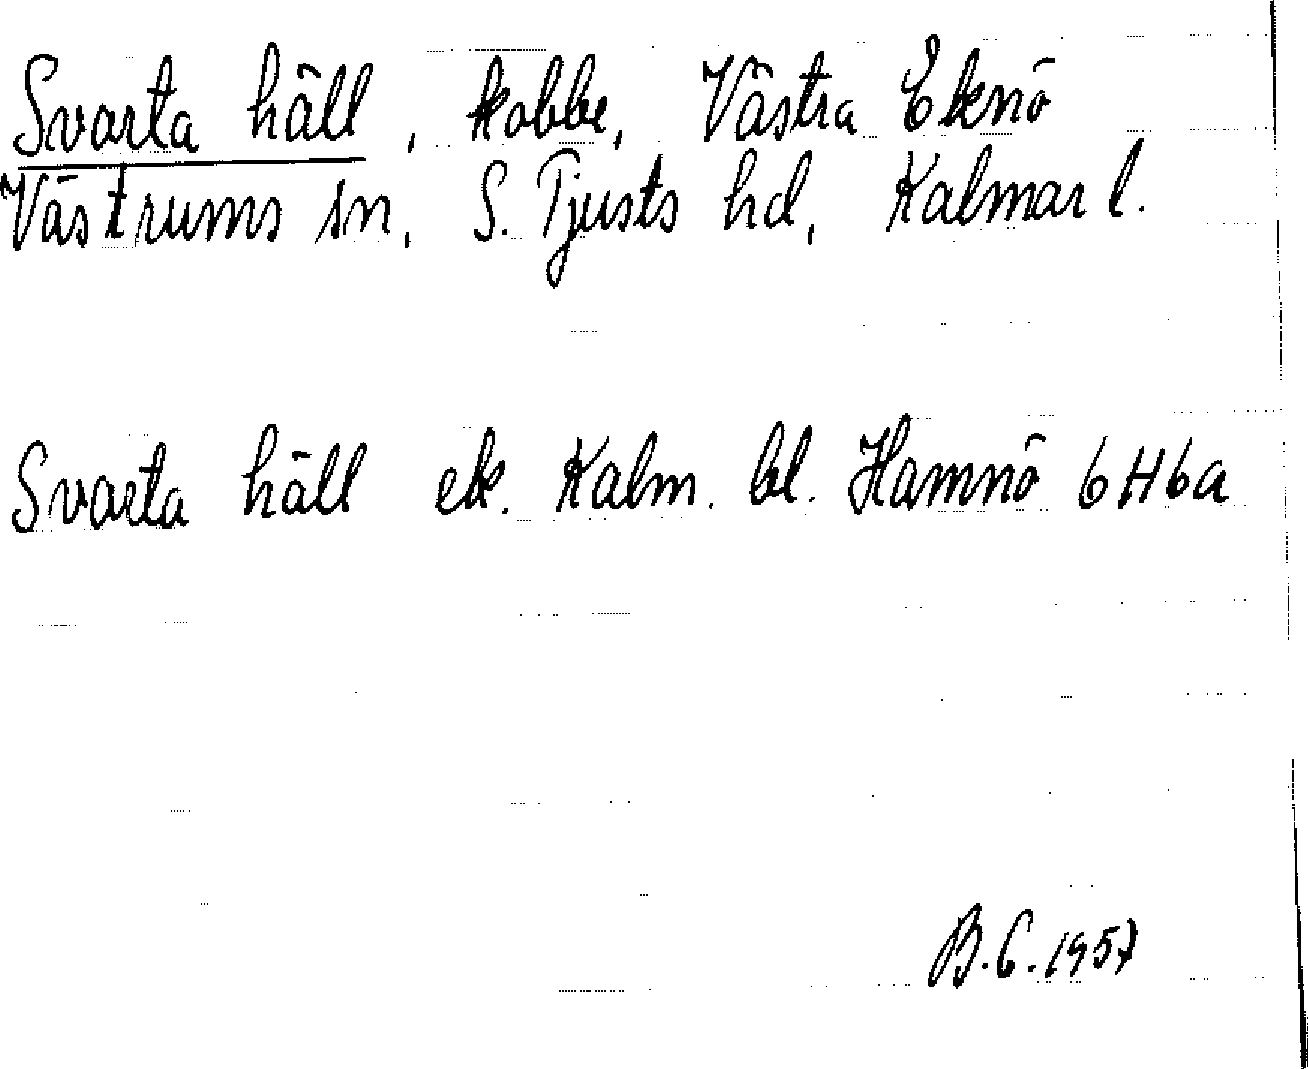 Svarta häll, kobbe, Västra Eknö
Västrums sn, S. Tjusts hd, Kalmar l.
Svarta häll ek. Kalm. bl. Hamnö 6H6a
B.C. 1957